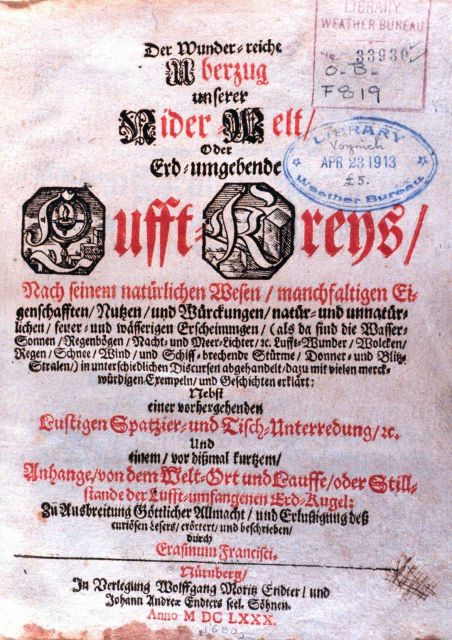 LIBRARY
WEATHER BUREAU
No 33930
O.B.
F819
LIBRARY
Voynich
APR 23 1913
£5.
Weather Bureau
Der Wunder-reiche
Uberzug
unserer
Nider-Welt/
Oder
Erd-umgebende
Lufft-Kreys/
Nach seinem natürlichen Wesen/ manchfaltigen Ei-
genschafften/ Nutzen/ und Würckungen/ natür- und unnatür-
lichen/ feuer- und wässerigen Erscheinungen/ (als da sind die Wasser-
Sonnen/ Regenbögen/ Nacht- und Meer-Liechter/ ꝛc. Lufft-Wunder/ Wolcken/
Regen/ Schnee/ Wind/ und Schiff-brechende Stürme/ Donner- und Blitz-
Stralen/) in unterschiedlichen Discursen abgehandelt/ dazu mit vielen merck-
würdigen Exempeln/ und Geschichten erklärt:
Nebst
einer vorhergehenden
Lustigen Spatzier- und Tisch-Unterredung/ ꝛc.
Und
einem/ vor dißmal kurtzem/
Anhange/ von dem Welt-Ort und Lauffe/ oder Still-
stande der Lufft-umfangenen Erd-Kugel:
Zu Ausbreitung Göttlicher Allmacht/ und Erlustigung deß
curiösen Lesers/ erörtert/ und beschrieben/
durch
Erasmum Francisci.
Nürnberg/
In Verlegung Wolffgang Moritz Endter/ und
Johann Andreæ Endters seel. Söhnen.
Anno M DC LXXX.
1680